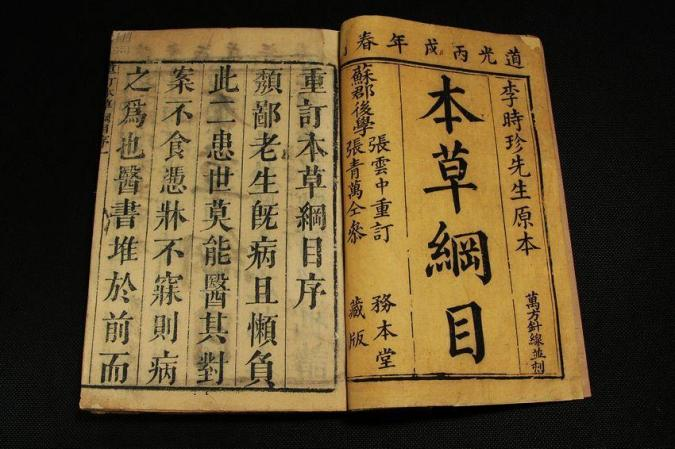 道光丙戌年春
李時珍先生原本
萬方針線並刊
本草綱目
張雲中重訂
蘇郡後學
張青萬仝參
務本堂
藏版
重訂本草綱目序
頺鄙老生旣病且懶負
此二患世莫能醫其對
案不食憑牀不寐則病
之爲也醫書堆於前而